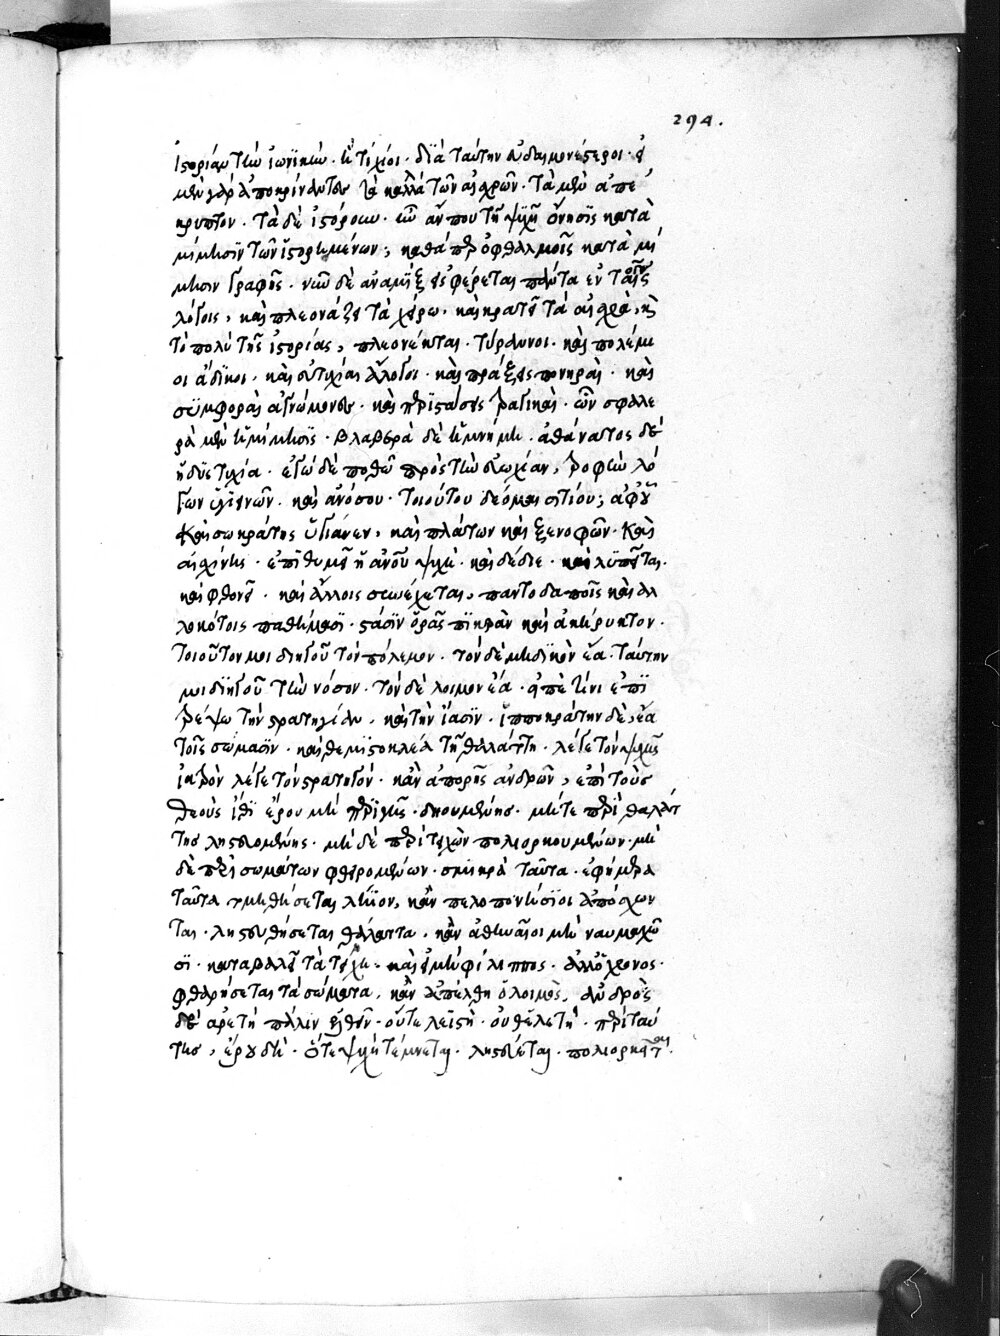 294.
ἱστορίαν τὴν ἰωνικήν · ἢ τί χῖοι · διὰ ταύτην εὐδαιμονέστεροι · εἰ
μὲν γὰρ ἀποκρίναντες τὰ καλλὰ τῶν αἰσχρῶν · τὰ μὲν ἀπέ
κρυπτον · τὰ δὲ ἱστόρουν · ἦν ἄν που τῇ ψυχῇ ὄνησις κατὰ
μίμησιν τῶν ἱστορημένων, καθάπερ ὀφθαλμοῖς κατὰ μί
μησιν γραφῆς · νῦν δὲ ἀναμὶξ φέρεται πάντα ἐν τοῖς
λόγοις, καὶ πλεονάζει τὰ χείρω · καὶ κρατεῖ τὰ αἰσχρά, καὶ
τὸ πολὺ τῆς ἱστορίας, πλεονέκται · τύραννοι · καὶ πολέμι
οι ἄδικοι · καὶ εὐτυχίαι ἄλογοι · καὶ πράξεις πονηραὶ · καὶ
συμφοραὶ ἀγνώμονες · καὶ περιστάσεις τραγικαὶ · ὧν σφαλε
ρὰ μὲν ἡ μίμησις · βλαβερὰ δὲ ἡ μνήμη · ἀθάνατος δὲ
ἡ δυστυχία · ἐγὼ δὲ ποθῶ πρὸς τὴν εὐωχίαν, τροφὴν λό
γων ὑγιεινῶν · καὶ ἀνόσου · τοιούτου δέομαι σιτίου, ἀφ' οὗ
καὶ σωκράτης ὑγίαινεν, καὶ πλάτων καὶ ξενοφῶν · καὶ
αἰσχίνης · ἐπιθυμεῖ ἡ ἀνου ψυχὴ · καὶ δέδιε · καὶ λυπεῖται ·
καὶ φθονεῖ · καὶ ἄλλοις συνέχεται, παντοδαποῖς καὶ ἀλ
λοκότοις παθήμασι · στάσιν ὁρᾷς πικρὰν καὶ ἀκήρυκτον ·
τοιοῦτον μοι διηγοῦ τὸν πόλεμον · τὸν δὲ μηδικὸν ἔα · ταύτην
μοι διηγοῦ τὴν νόσον · τὸν δὲ λοιμὸν ἔα · εἰπὲ τίνι ἐπι
τρέψω τὴν στρατηγίαν, καὶ τὴν ἴασιν · ἱπποκράτην δὲ, ἔα
τοῖς σώμασιν · καὶ θεμιστοκλέα τῇ θαλάττῃ · λέγε τὸν ψυχῆς
ἰατρὸν λέγε τὸν στρατηγόν · κἂν ἀπορῇς ἀνδρῶν, ἐπὶ τοὺς
θεοὺς ἴθι ἔρου μὴ περὶ γῆς · δῃουμένης · μήτε περὶ θαλάτ
της λῃστευομένης · μὴ δὲ περὶ τειχῶν πολιορκουμένων · μὴ
δὲ περὶ σωμάτων φθειρομένων · σμικρὰ ταῦτα · ἐφήμερα
ταῦτα τμηθήσεται λήϊον, κἂν πελοποννήσιοι ἀπόσχων
ται · λῃστευθήσεται θάλαττα, κἂν ἀθηναῖοι μὴ ναυμαχῶ
σι · καταβαλεῖ τὰ τείχη · καὶ εἰ μὴ φίλιππος · ἀλλ' ὁ χρόνος ·
φθαρήσεται τὰ σώματα, κἂν ἀπέλθῃ ὁ λοιμὸς, ἀνδρὸς
δὲ ἀρετὴ πάλιν ἐλθεῖν · οὔτε λεϊστὴ · οὐθ' ἑλετὴ · περὶ ταύ
της, ἐροῦ δὴ · ὅτε ψυχὴ τέμνεται · λῃστεύεται · πολιορκεῖται ·